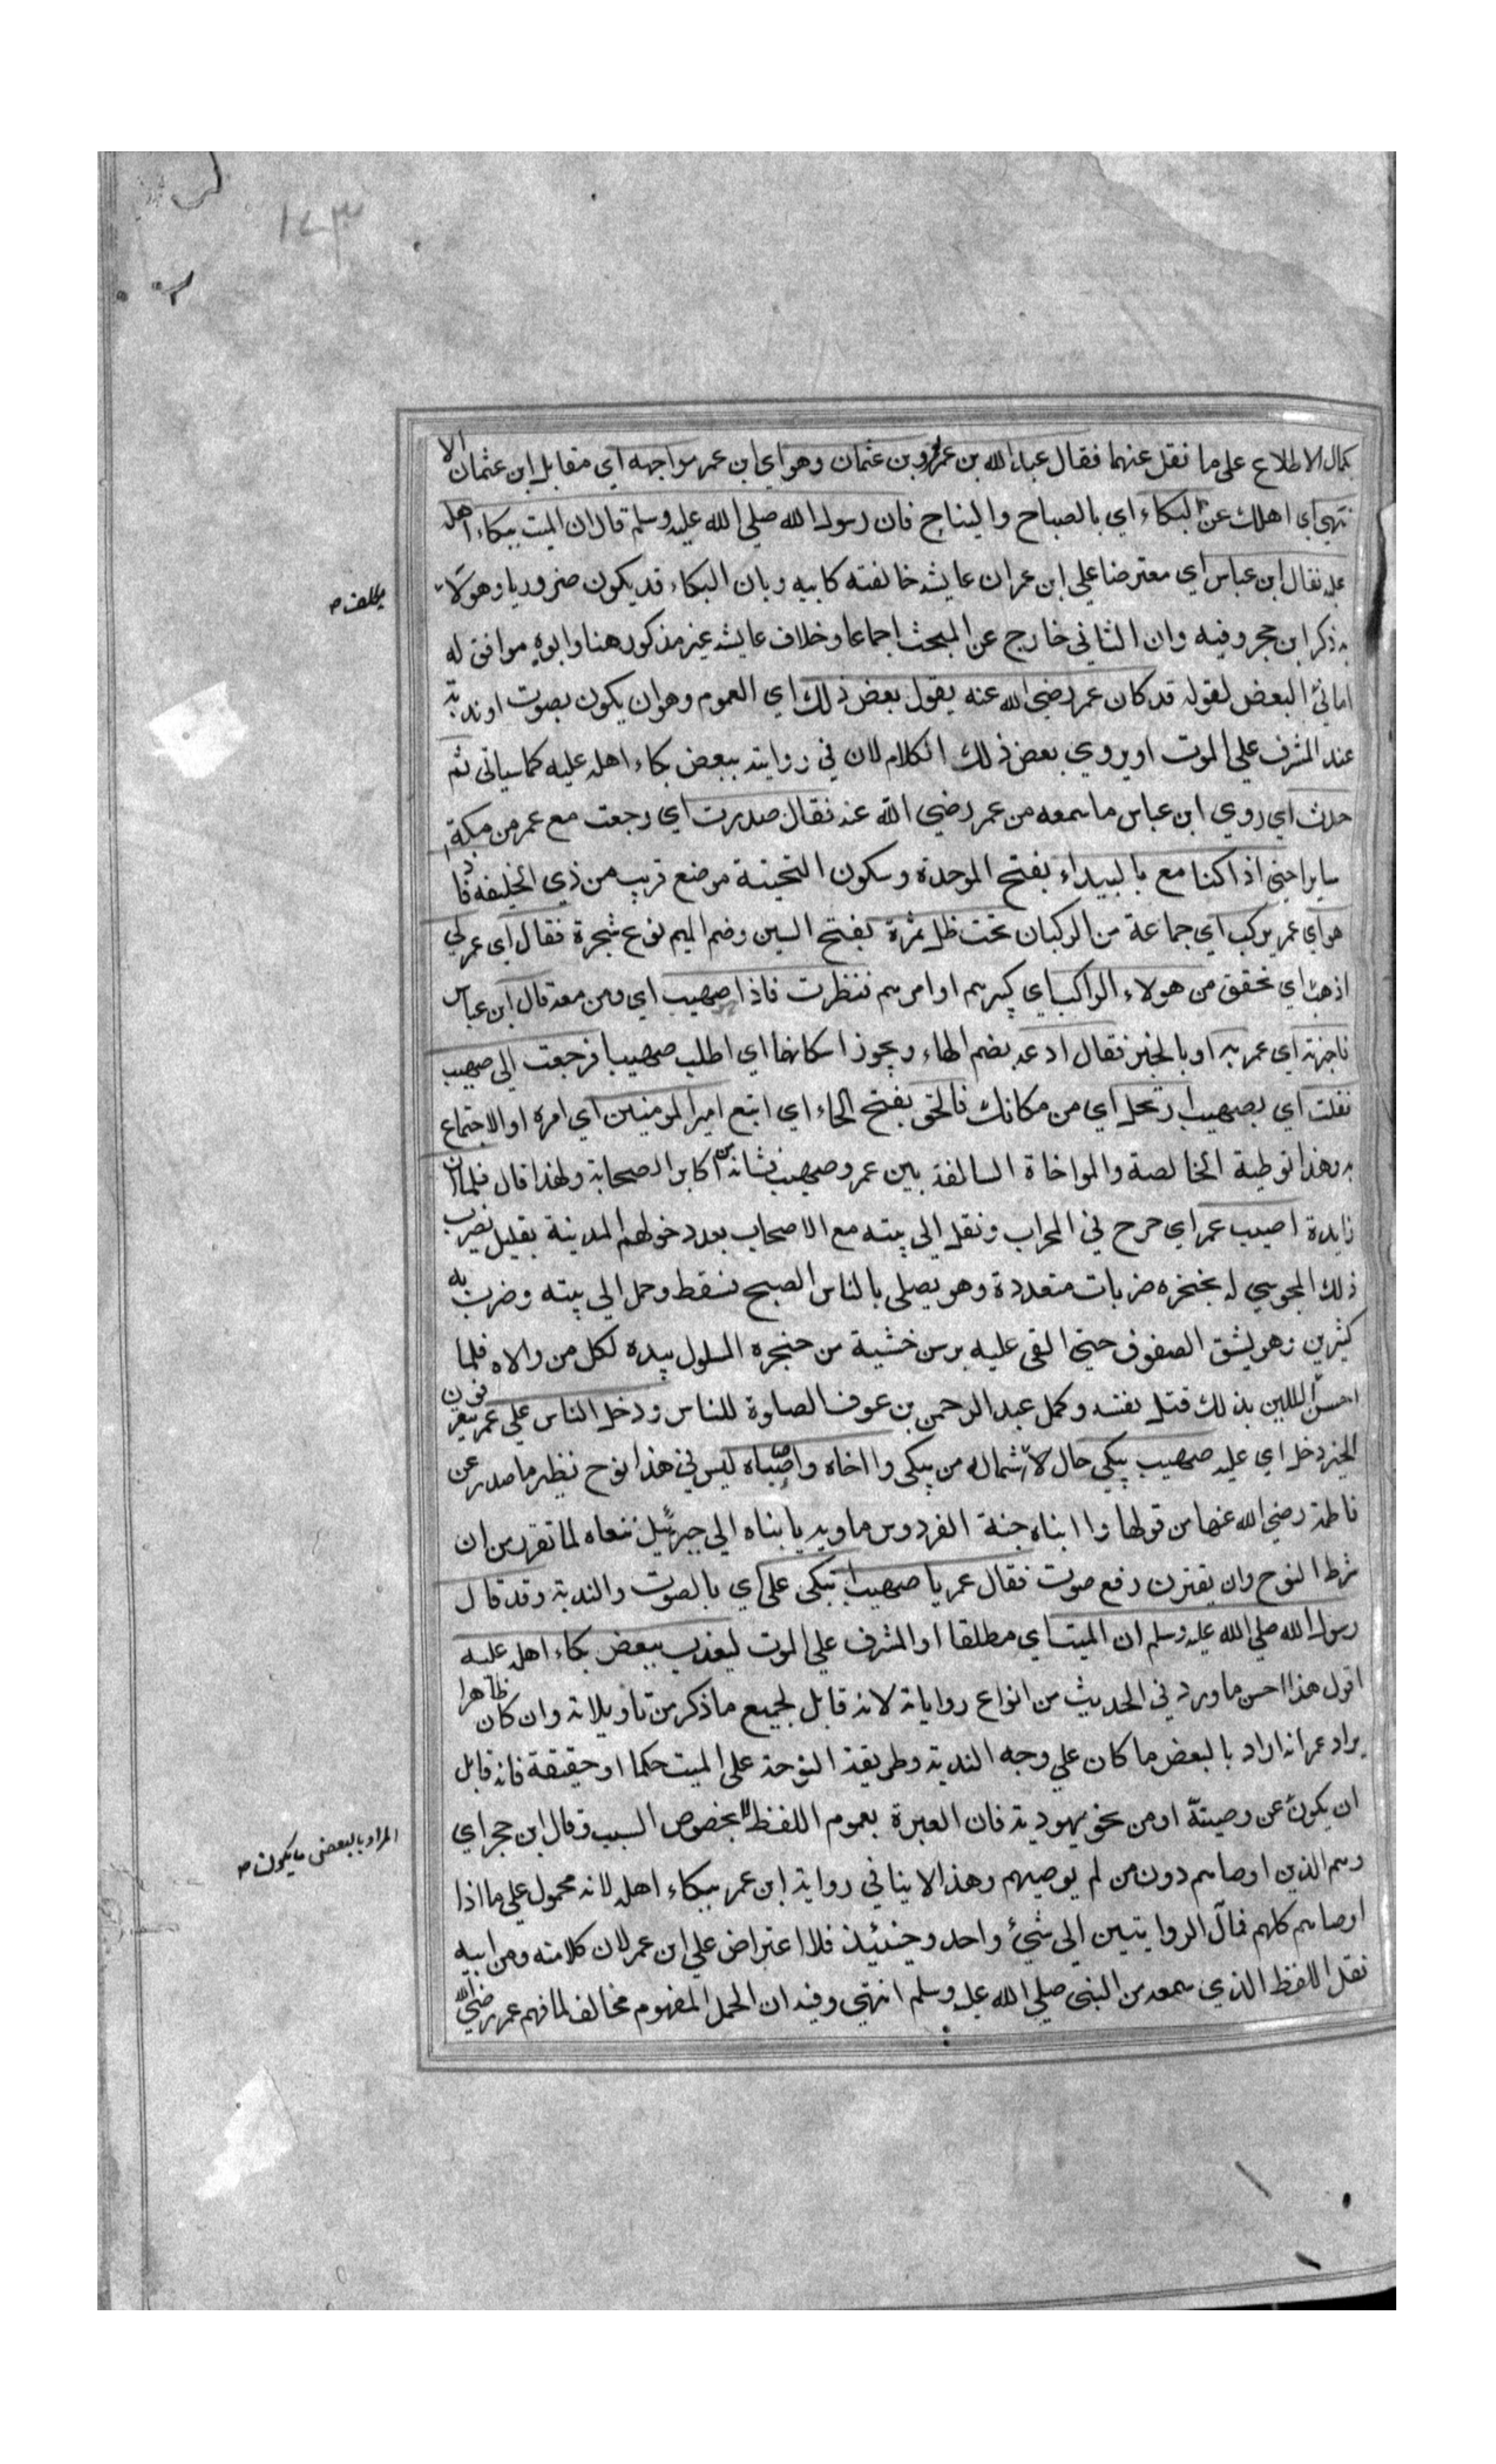 ١٧٣
بكمال الاطلاع على ما نقل عنهما فقال عبد الله بن عمر لعمرو بن عثمان وهو اي ابن عمر مواجهه اي مقابل ابن عثمان الا
تنهي اي اهلك عن البكاء اي بالصياح والنياح فان رسول الله صلي الله عليه وسلم قال ان الميت ببكاء اهله
عليه فقال ابن عباس اي معترضا علي ابن عمر ان عايشه خالفته كابيه وبان البكاء قد يكون ضروريا وهولا
به ذكر ابن حجر وفيه وان الثاني خارج عن المبحث اجماعا وخلاف عايشه غير مذكور هنا وابوه موافق له
اماني البعض لقوله قد كان عمر رضي الله عنه يقول بعض ذلك اي العموم وهو ان يكون بصوت او ندبة
عند المشرف علي الموت او يروي بعض ذلك الكلام لان في روايته ببعض بكاء اهله عليه كما سياتي ثم
حدث اي روي ابن عباس ما سمعه من عمر رضي الله عنه فقال صدرت اي رجعت مع عمر من مكة
سايرا حتي اذا كنا مع بالبيداء بفتح الموحدة وسكون التحتية موضع قريب من ذي الحليفه فاذا
هو اي عمر بركب اي جماعة من الركبان تحت ظل سمرة بفتح السين وضم الميم نوع شجرة فقال اي عمر لي
اذهب اي تحقق من هولاء الراكب اي كبيرهم او اميرهم فنظرت فاذا صهيب اي ومن معه قال ابن عباس
فاخبرته اي عمر به او بالخبر فقال ادعه بضم الهاء ويجوز اسكانها اي اطلب صهيبا فرجعت الي صهيب
فقلت اي بصهيب ارتحل اي من مكانك فالحق بفتح الحاء اي اتبع امير المومنين اي امره او الاجتماع
به وهذا توطية الخالصة والمواخاة السالفة بين عمر وصهيب فشانه من اكابر الصحابة ولهذا قال فلما ان
زايدة اصيب عمر اي جرح في المحراب ونقل الي بيته مع الاصحاب بعد دخولهم المدينة بقليل بضرب
ذلك المجوسي له بخنجره ضربات متعددة وهو يصلي بالناس الصبح فسقط وحمل الي بيته وضرب به
كثيرين وهو يشق الصفوف حتي القي عليه برنس خشية من خنجره المسلول بيده لكل من والاه فلما
احس اللعين بذلك قتل نفسه وكمل عبد الرحمن بن عوف الصلوة للناس ودخل الناس علي عمر يتعرفون
الخبر دخل اي عليه صهيب يبكي حال لاشتماله من يبكي وا اخاه واصاحباه ليس في هذا نوح نظير ما صدر عن
فاطمة رضي الله عنها من قولها وا ابتاه جنة الفردوس ماويه يا ابتاه الي جبرئيل ننعاه لما تقرر من ان
شرط النوح وان يقترن رفع صوت فقال عمر يا صهيب اتبكي علي اي بالصوت والندبة وقد قال
رسول الله صلي الله عليه وسلم ان الميت اي مطلقا او المشرف علي الموت ليعذب ببعض بكاء اهله عليه
اقول هذا احسن ما ورد في الحديث من انواع رواياته لانه قابل لجميع ما ذكر من تاويلاته وان كان ظاهرا
يراد عمر انه اراد بالبعض ما كان علي وجه الندبة وطريقة النوحة على الميت حكما او حقيقة فانه قابل
ان يكون عن وصيته او من نحو يهودية فان العبرة بعموم اللفظ لا بخصوص السبب وقال ابن حجر اي
وهم الذين اوصاهم دون من لم يوصيهم وهذا لا ينافي رواية ابن عمر ببكاء اهله لانه محمول علي ما اذا
اوصاهم كلهم فمآل الروايتين الي شيء واحد وحينئذ فلا اعتراض علي ابن عمر لان كلا منه ومن ابيه
نقل اللفظ الذي سمعه من النبي صلي الله عليه وسلم انتهي وفيه ان الحمل المفهوم مخالف لما فهم عمر رضي الله
المراد بالبعض ما يكون صح